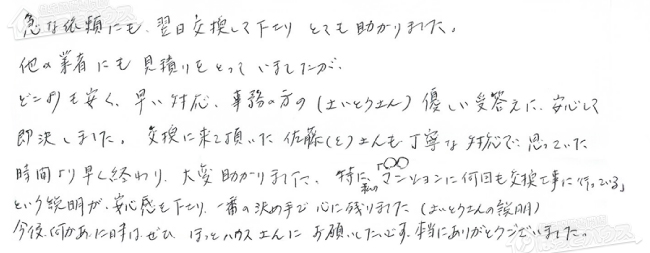 急な依頼にも、翌日交換して下さり とても助かりました。
他の業者にも見積りをとっていましたが、
どこよりも安く、早い対応、事務の方の(さいとうさん)優しい受答えに、安心して
即決しました。交換に来て頂いた佐藤(と)さんも丁寧な対応で、思っていた
時間より早く終わり、大変助かりました。特に、「私の○○マンションに何回も交換工事に行っている」
という説明が、安心感を下さり、一番の決め手で心に残りました(さいとうさんの説明)
今後、何かあった時は、ぜひ ほっとハウスさんに お願いしたいです。本当にありがとうございました。